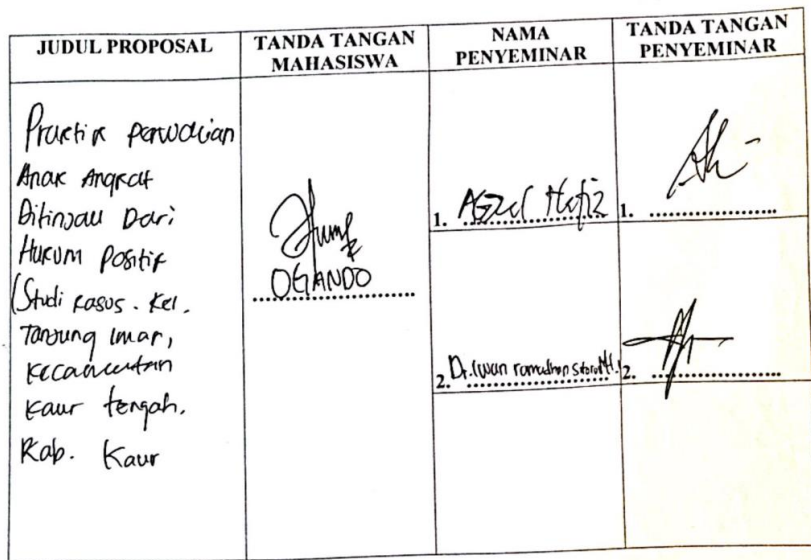 JUDUL PROPOSAL
TANDA TANGAN
MAHASISWA
NAMA
PENYEMINAR
TANDA TANGAN
PENYEMINAR
Praktik perwalian
Anak Angkat
Ditinjau Dari
Hukum Positif
(Studi kasus. Kel.
Tanjung Iman,
Kecamatan
Kaur tengah.
Kab. Kaur
OGANDO
1. Hafiz
1.
2. Dr. Iwan ramadhan
2.